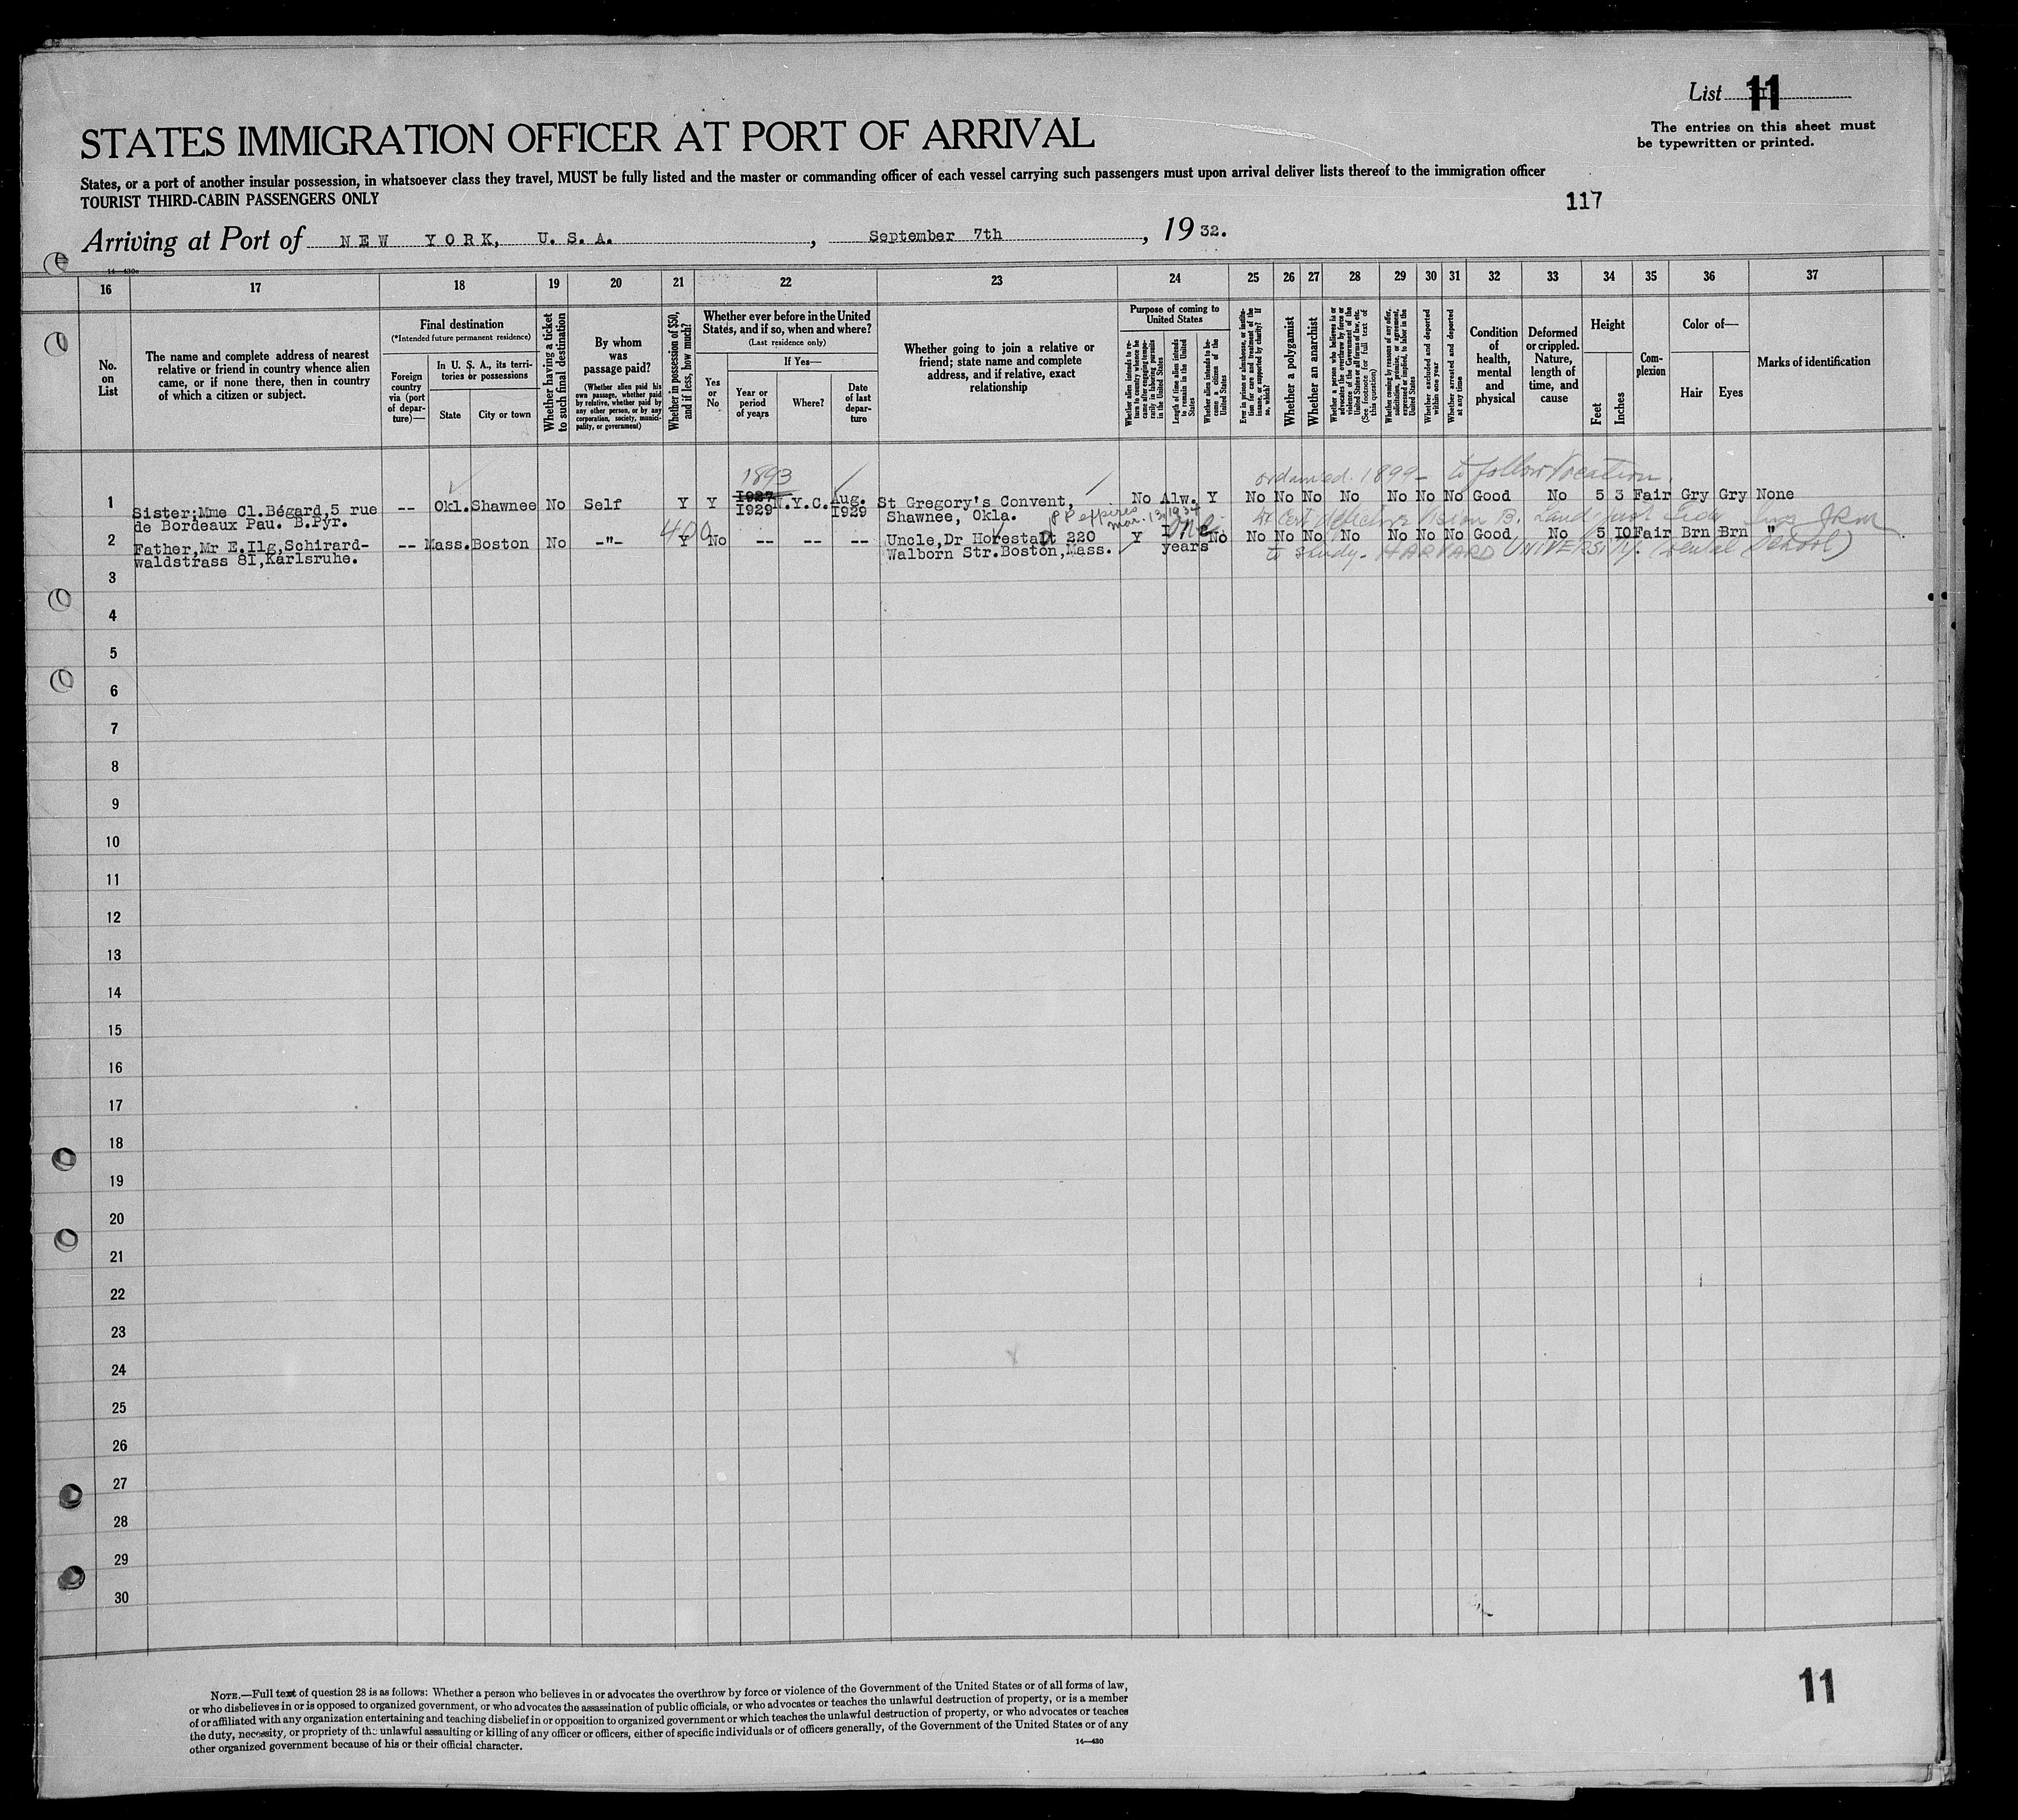 List 11
The entries on this sheet must
be typewritten or printed.
STATES IMMIGRATION OFFICER AT PORT OF ARRIVAL
States, or a port of another insular possession, in whatsoever class they travel, MUST be fully listed and the master or commanding officer of each vessel carrying such passengers must upon arrival deliver lists thereof to the immigration officer
TOURIST THIRD-CABIN PASSENGERS ONLY
117
Arriving at Port of NEW YORK, U.S.A. , September 7th , 19 32.
14—430a
16 17 18 19 20 21 22 23 24 25 26 27 28 29 30 31 32 33 34 35 36 37
No.
on
List
The name and complete address of nearest
relative or friend in country whence alien
came, or if none there, then in country
of which a citizen or subject.
Final destination
(*Intended future permanent residence)
Foreign
country
via (port
of depar-
ture)—
In U. S. A., its terri-
tories or possessions
State
City or town
Whether having a ticket
to such final destination
By whom
was
passage paid?
(Whether alien paid his
own passage, whether paid
by relative, whether paid by
any other person, or by any
corporation, society, munici-
pality, or government)
Whether in possession of $50,
and if less, how much?
Whether ever before in the United
States, and if so, when and where?
(Last residence only)
Yes
or
No
If Yes—
Year or
period
of years
Where?
Date
of last
depar-
ture
Whether going to join a relative or
friend; state name and complete
address, and if relative, exact
relationship
Purpose of coming to
United States
Whether alien intends to re-
turn to country whence he
came after engaging tempo-
rarily in laboring pursuits
in the United States
Length of time alien intends
to remain in the United
States
Whether alien intends to be-
come a citizen of the
United States
Ever in prison or almshouse, or institu-
tion for care and treatment of the
insane, or supported by charity? If
so, which?
Whether a polygamist
Whether an anarchist
Whether a person who believes in or
advocates the overthrow by force or
violence of the Government of the
United States or all forms of law, etc.
(See footnote for full text of
this question)
Whether coming by reason of any offer,
solicitation, promise, or agreement,
expressed or implied, to labor in the
United States
Whether excluded and deported
within one year
Whether arrested and deported
at any time
Condition
of
health,
mental
and
physical
Deformed
or crippled.
Nature,
length of
time, and
cause
Height
Feet
Inches
Com-
plexion
Color of—
Hair
Eyes
Marks of identification
1893
ordained 1899 - to follow Vocation.
1 Sister;Mme Cl.Bégard,5 rue -- Okl. Shawnee No Self Y Y 1927 N.Y.C. Aug. St Gregory's Convent, No Alw. Y No No No No No No No Good No 5 3 Fair Gry Gry None
de Bordeaux Pau. B.Pyr. 1929 1929 Shawnee, Okla.
PP expires
Mar. 13, 1934
Cert defective Vision
400
One
2 Father,Mr E.Ilg,Schirard- -- Mass. Boston No -"- Y No -- -- -- Uncle,Dr Horestadt 220 Y No No No No No No No No Good No 5 10 Fair Brn Brn "
waldstrass 81,Karlsruhe. Walborn Str.Boston,Mass. years
to study - HARVARD UNIVERSITY. (Dental School)
3
4
5
6
7
8
9
10
11
12
13
14
15
16
17
18
19
20
21
22
23
24
25
26
27
28
29
30
NOTE.—Full text of question 28 is as follows: Whether a person who believes in or advocates the overthrow by force or violence of the Government of the United States or of all forms of law,
or who disbelieves in or is opposed to organized government, or who advocates the assassination of public officials, or who advocates or teaches the unlawful destruction of property, or is a member
of or affiliated with any organization entertaining and teaching disbelief in or opposition to organized government or which teaches the unlawful destruction of property, or who advocates or teaches
the duty, necessity, or propriety of the unlawful assaulting or killing of any officer or officers, either of specific individuals or of officers generally, of the Government of the United States or of any
other organized government because of his or their official character.
14—430
11